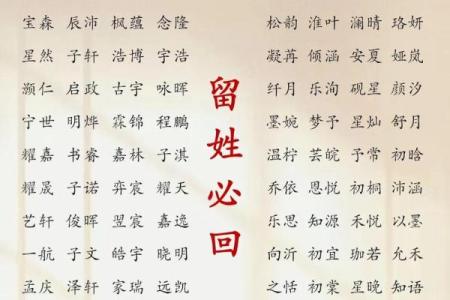 宝森 辰沛 枫蕴 念隆
星然 子轩 浩博 宇浩
灏仁 启政 古宇 咏晖
宁世 明烨 霖锦 程鹏
耀嘉 书睿 嘉林 子淇
耀晟 子诺 弈宸 耀天
艺轩 俊晖 翌宸 嘉逸
一航 子文 皓宇 晓明
孟庆 泽轩 家瑞 远凯
留姓必回
松韵 淮叶 澜晴 珞妍
凝苒 倾涵 安夏 娅岚
纤月 乐洵 砚星 颜汐
墨婉 梦予 星灿 舒月
温柠 芸皖 予常 初晗
乔依 恩悦 初桐 沛涵
乐思 知源 禾悦 以墨
向沂 初宜 珈若 允禾
之恬 初棠 星晚 知语